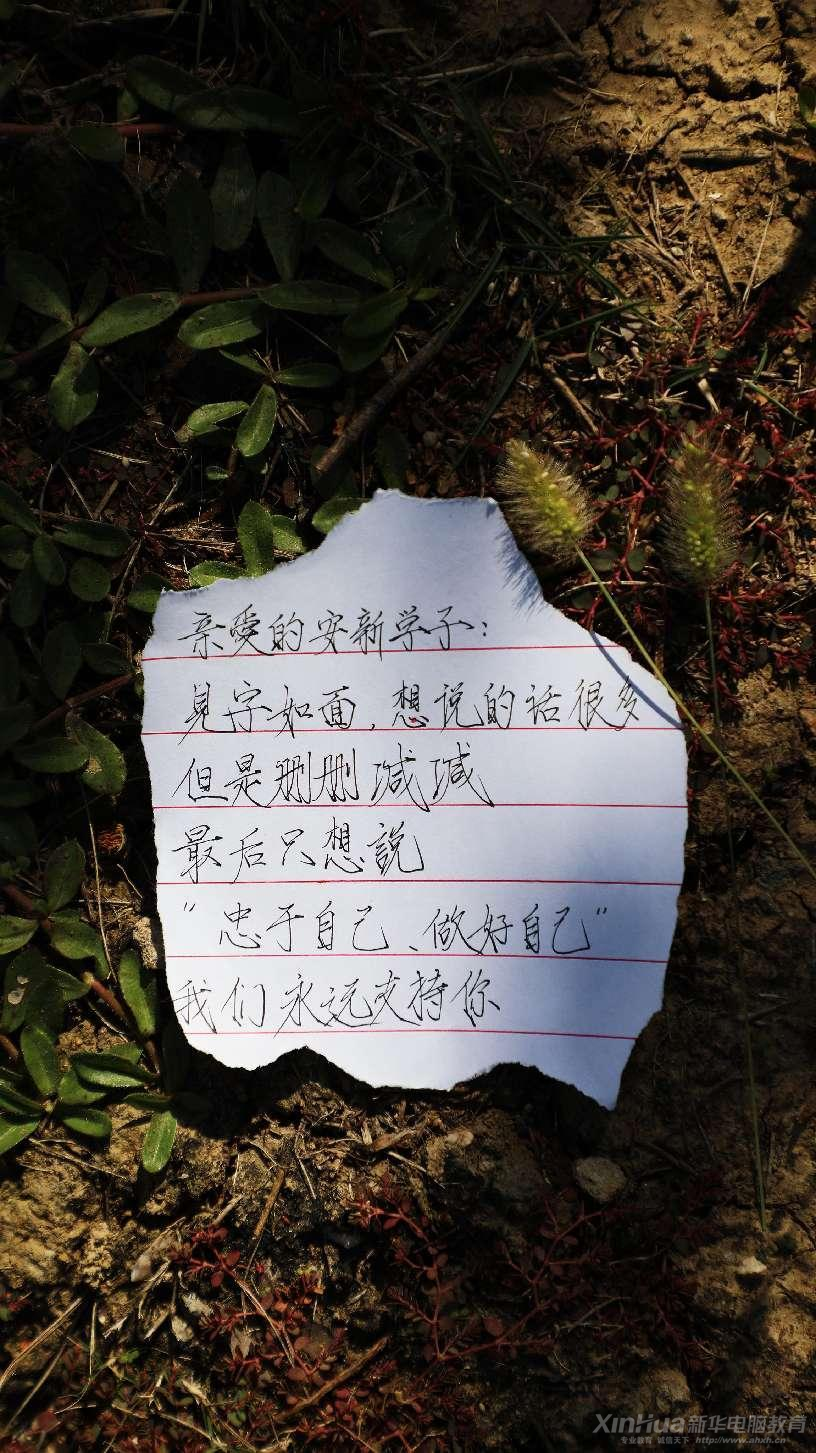 亲愛的安新学子：
見字如面，想说的话很多
但是删删减减
最后只想説
“忠于自己、做好自己”
我们永远支持你
XinHua新华电脑教育
专业教育 诚信天下 http://www.ahxh.cn